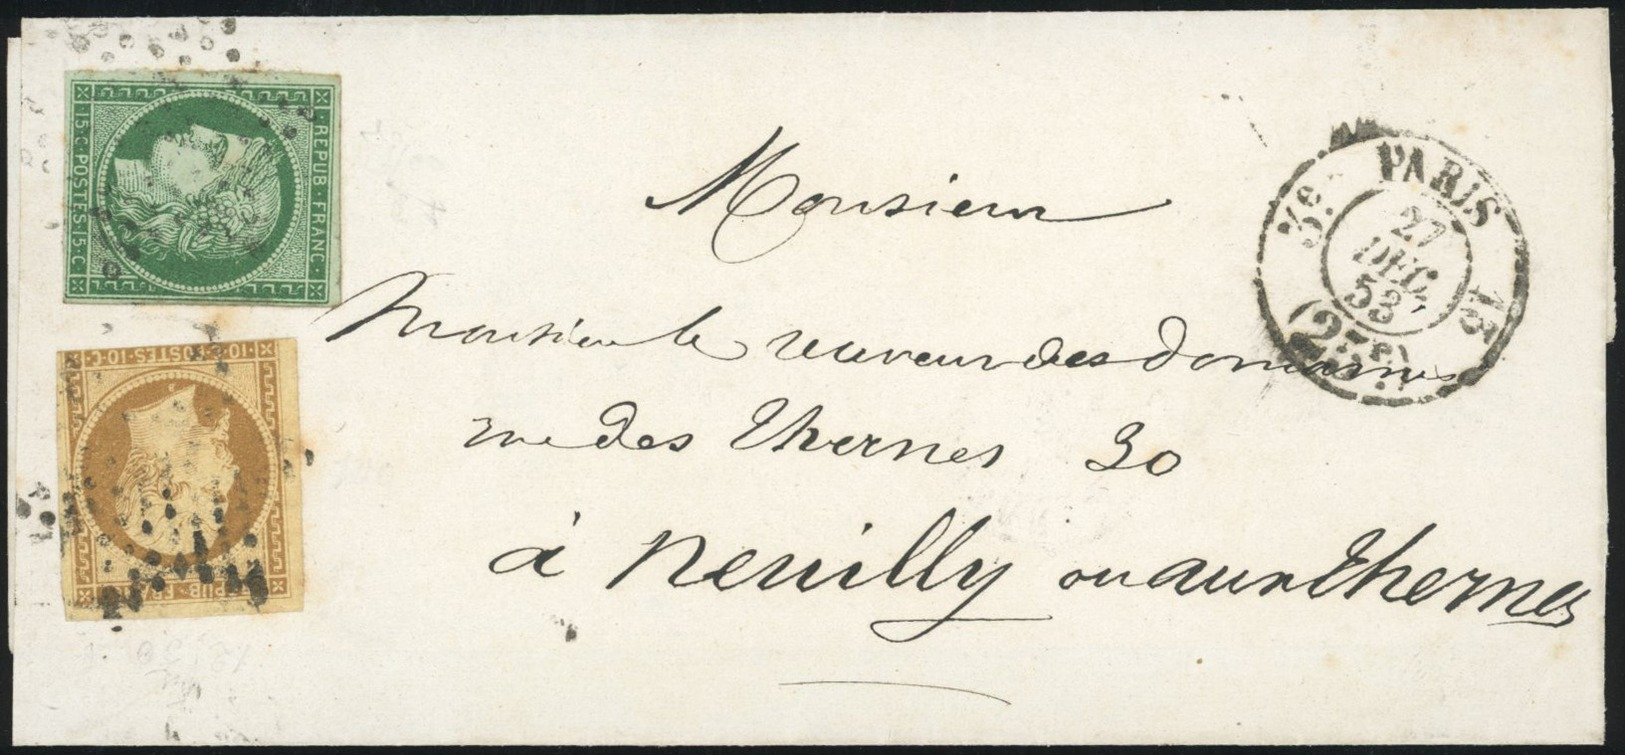 REPUB·FRANC·
·15·C·POSTES·15·C·
·10·C·POSTES·10·C·
REPUB·FRANC
PARIS
3e
27
DEC.
53
(25e)
13
Monsieur
Monsieur le receveur des domaines
rue des thernes 30
à Neuilly ou aux thernes